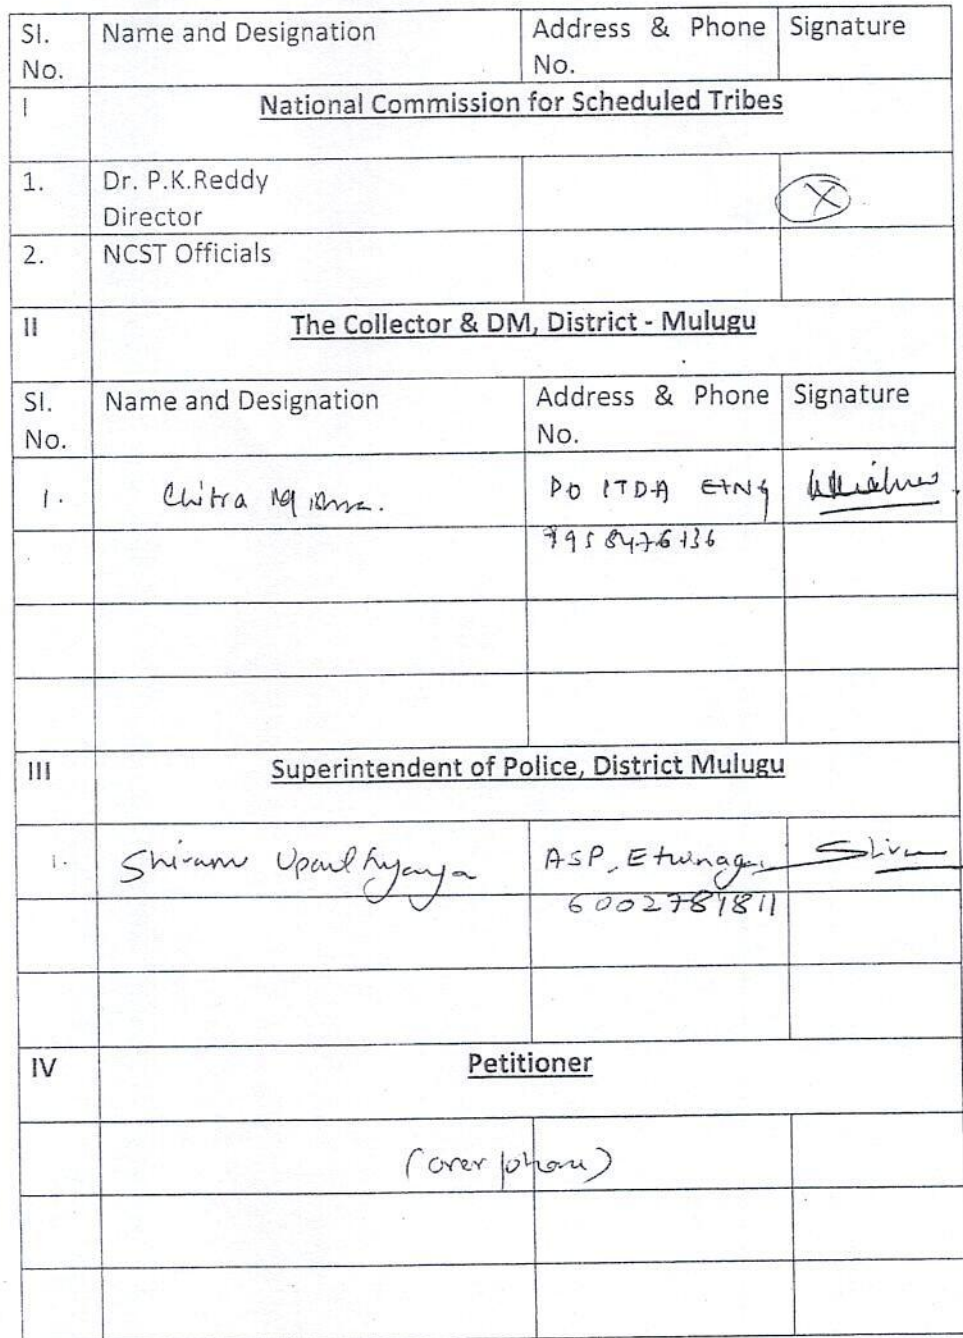 Sl. No. Name and Designation Address & Phone No. Signature
I National Commission for Scheduled Tribes
1. Dr. P.K.Reddy Director X
2. NCST Officials
II The Collector & DM, District - Mulugu
Sl. No. Name and Designation Address & Phone No. Signature
1. Chitra Mishra. PO ITDA ETNG
III Superintendent of Police, District Mulugu
1. Shivam Upadhyaya ASP, Eturnagaram
6002781811
IV Petitioner
(over phone)